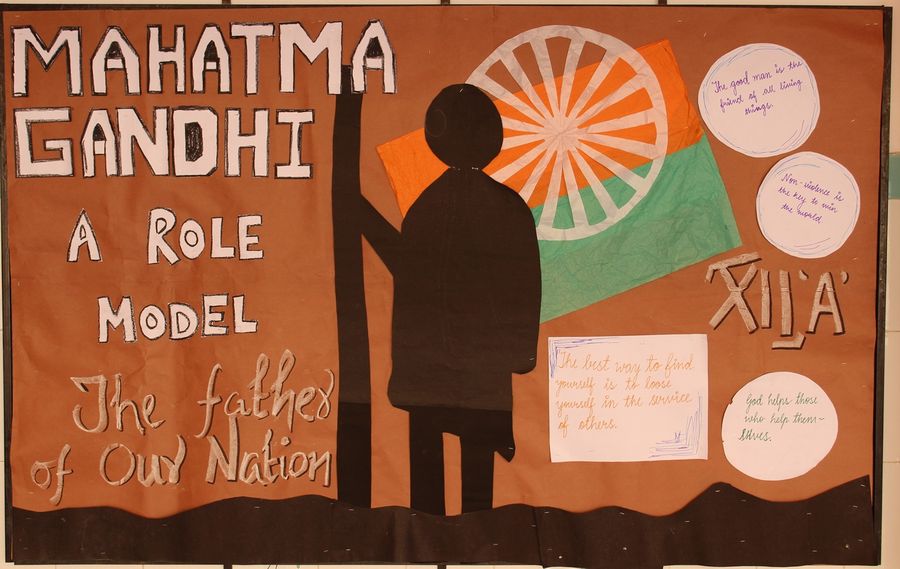 MAHATMA
GANDHI
A ROLE
MODEL
The father
of Our Nation
The good man is the
friend of all living
things.
Non-violence is
the key to win
the world
XII 'A'
The best way to find
yourself is to loose
yourself in the service
of others.
God helps those
who help them-
selves.